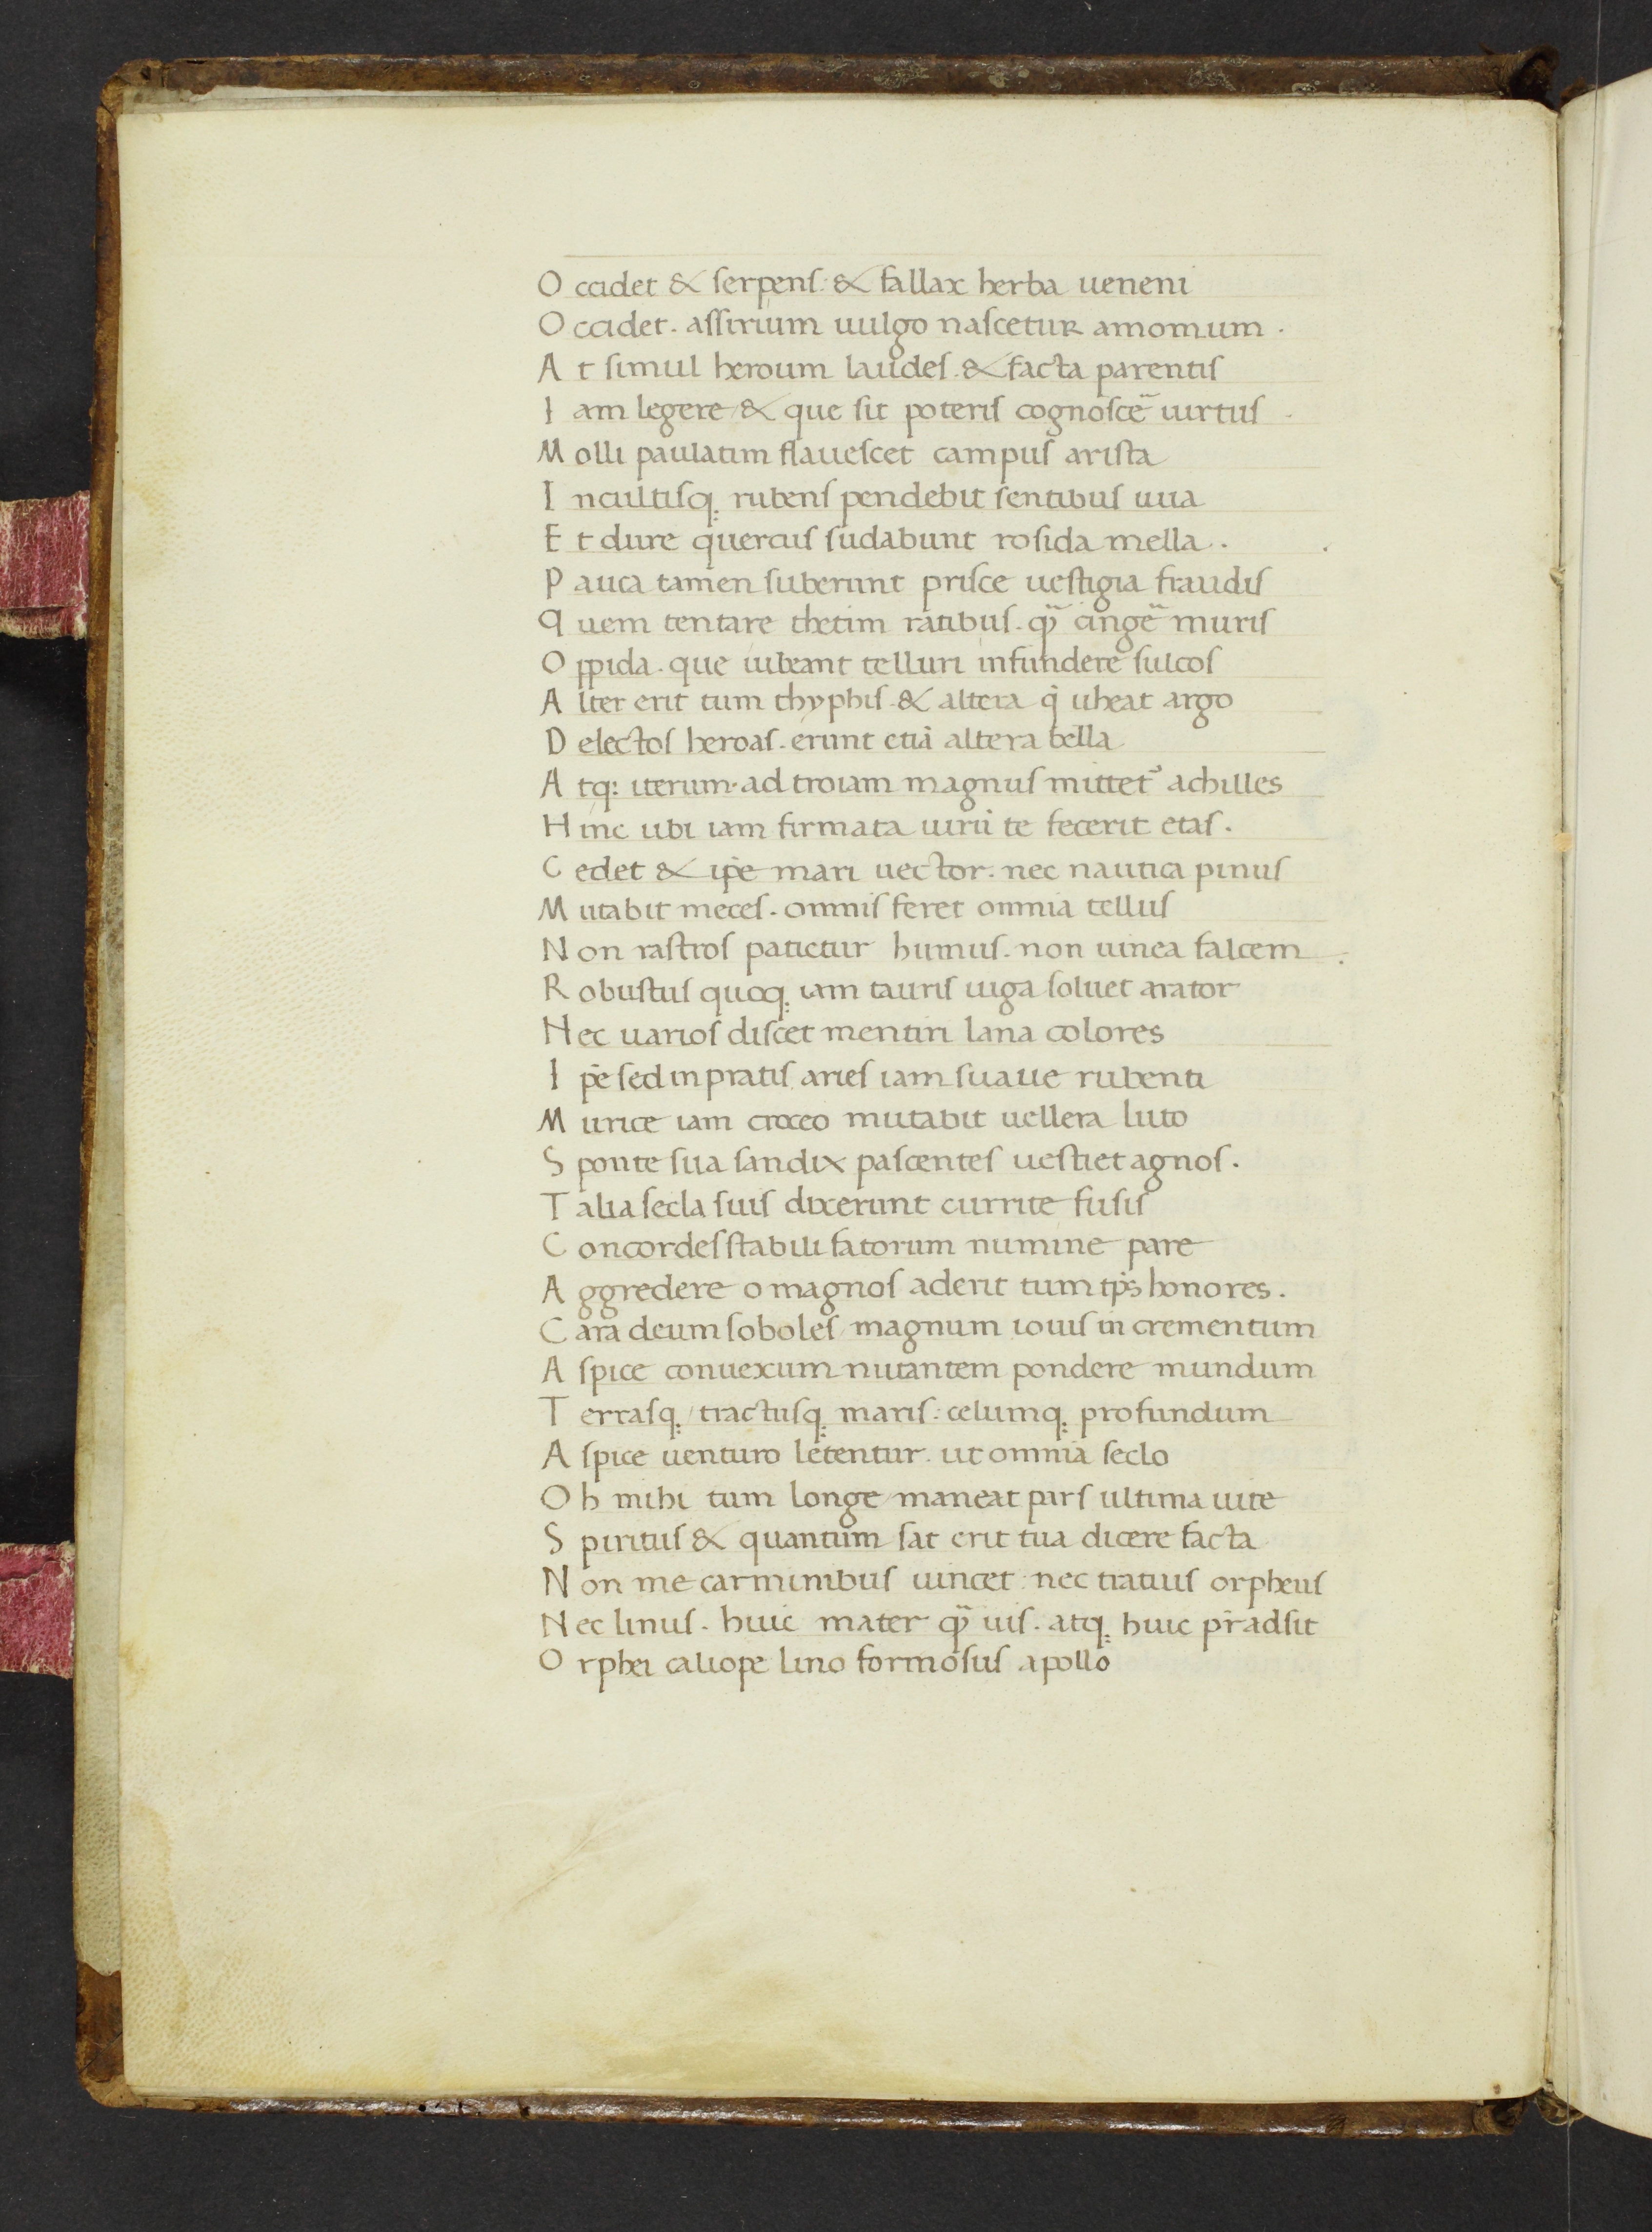 Occidet & serpens: & fallax herba ueneni
Occidet. assirium uulgo nascetur amomum.
At simul heroum laudes. & facta parentis
Iam legere / & que sit poteris cognosce᷑ uirtus.
Molli paulatim flauescet campus arista
Incultisq; rubens pendebit sentibus uua
Et dure quercus sudabunt rosida mella.
Pauca tamen suberunt prisce uestigia fraudis
Quem tentare thetim ratibus. q̃ cinge᷑ muris
Oppida. que iubeant telluri infundere sulcos
Alter erit tum thyphis. & altera q̇ uheat argo
Delectos heroas. erunt etiā altera bella
Atq: iterum. ad troiam magnus mittet᾽ achilles
Hinc ubi iam firmata uirū te fecerit etas.
Cedet & ip̄e mari uector. nec nautica pinus
Mutabit meces. omnis feret omnia tellus
Non rastros patietur humus. non uinea falcem.
Robustus quoq; iam tauris iuga soluet arator
Nec uarios discet mentiri lana colores
Ip̄e sed in pratis aries iam suaue rubenti
Murice iam croceo mutabit uellera luto
Sponte sua sandix pascentes uestiet agnos.
Talia secla suis dixerunt currite fusis
Concordes stabili fatorum numine pare
Aggredere o magnos aderit tum tp̄s honores.
Cara deum soboles / magnum iouis in crementum
Aspice conuexum nutantem pondere mundum
Terrasq; / tractusq; maris: celumq; profundum
Aspice uenturo letentur. ut omnia seclo
Oh mihi tum longe maneat pars ultima uite
Spiritus & quantum sat erit tua dicere facta
Non me carminibus uincet: nec tratius orpheus
Nec linus. huic mater q̃ uis. atq; huic pr̄ adsit
Orphei caliope lino formosus apollo